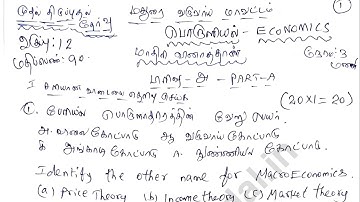 முதல் திருப்புதல் தேர்வு மதுரை வருவாய் மாவட்டம் ①
வகுப்பு: 12 பொருளியல் - ECONOMICS
மதிப்பெண்: 90 மாதிரி வினாத்தாள் நேரம்: 3 மணி
பகுதி - அ - PART-A
I சரியான விடையை தெரிவு செய்க (20X1=20)
①. பேரியல் பொருளாதாரத்தின் வேறு பெயர்
அ. விலை கோட்பாடு ஆ வருவாய் கோட்பாடு
இ அங்காடி கோட்பாடு ஈ. நுண்ணியல் கோட்பாடு
Identify the other name for MacroEconomics.
(a) Price Theory (b) Income theory (c) Market theory